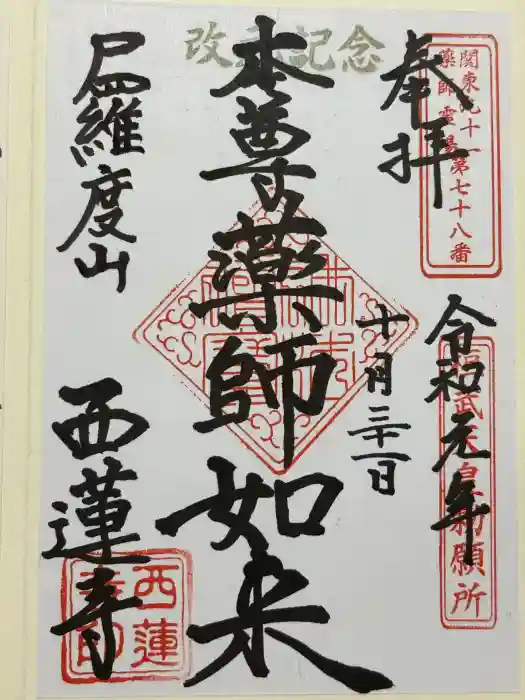 改元記念
奉拝
関東九十一
薬師霊場第七十八番
令和元年
桓武天皇勅願所
十月三十一日
本尊薬師如来
尸羅度山
西蓮寺
西蓮
寺印